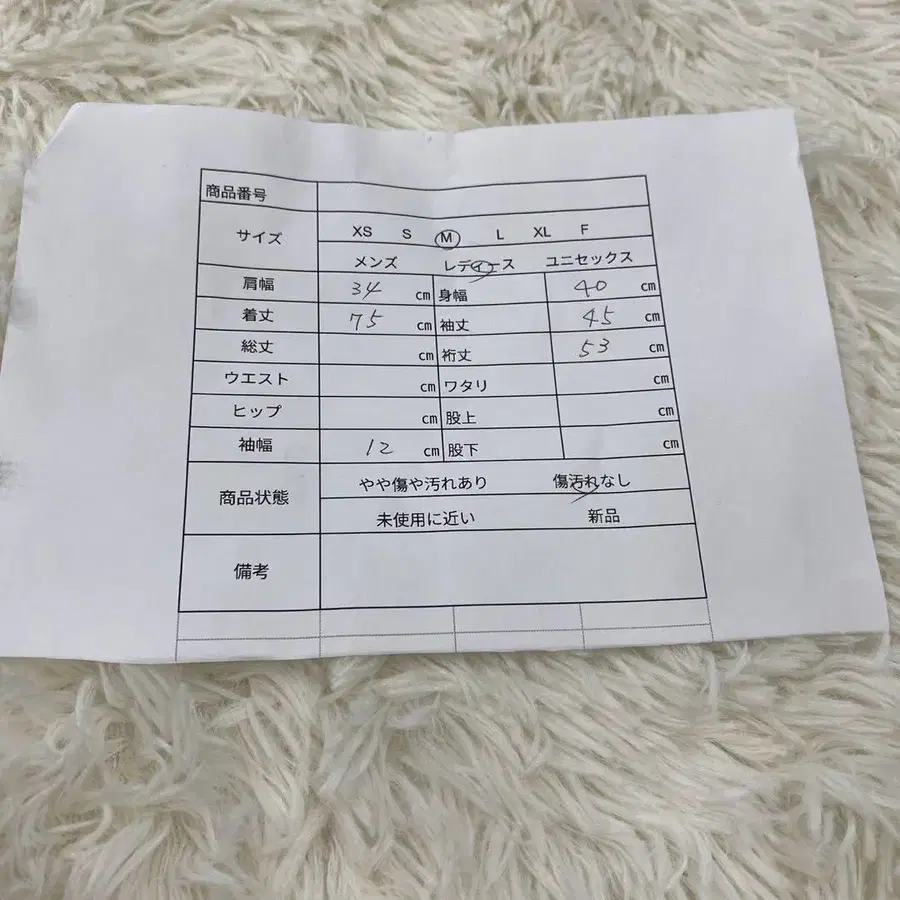 商品番号
サイズ XS S M L XL F
メンズ レディース ユニセックス
肩幅 34 cm 身幅 40 cm
着丈 75 cm 袖丈 45 cm
総丈 cm 裄丈 53 cm
ウエスト cm ワタリ cm
ヒップ cm 股上 cm
袖幅 12 cm 股下 cm
商品状態 やや傷や汚れあり 傷汚れなし
未使用に近い 新品
備考